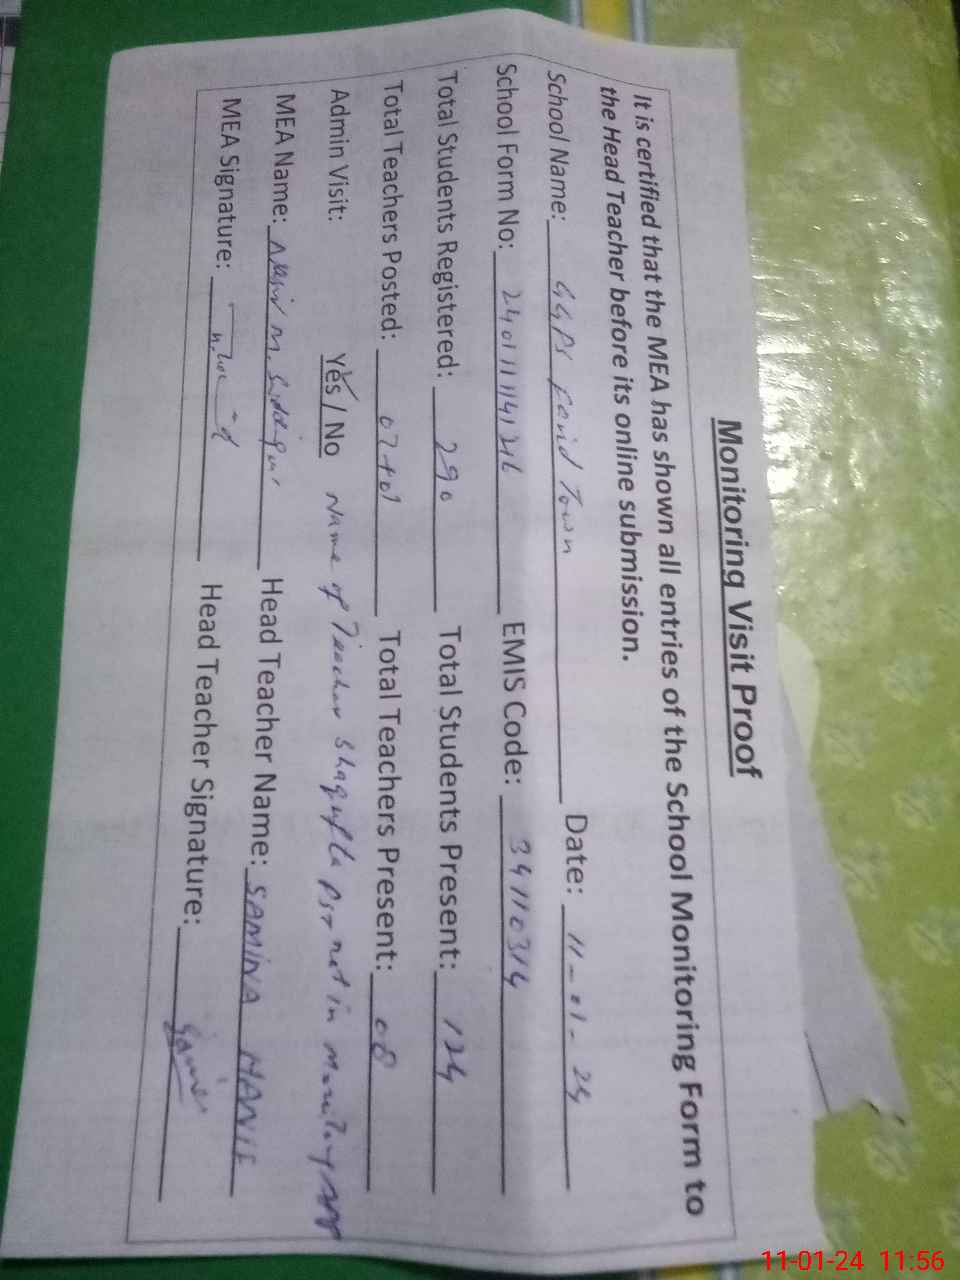 Monitoring Visit Proof
It is certified that the MEA has shown all entries of the School Monitoring Form to
the Head Teacher before its online submission.
School Name: GGPS Farid Town Date: 11-01-24
School Form No: EMIS Code: 34110314
Total Students Registered: 290 Total Students Present: 124
Total Teachers Posted: 07+01 Total Teachers Present: 08
Admin Visit: Yes / No Name of Teacher Shagufta PST not in Monitoring APP
MEA Name: Head Teacher Name: SAMINA HANIF
MEA Signature: Head Teacher Signature:
11-01-24 11:56